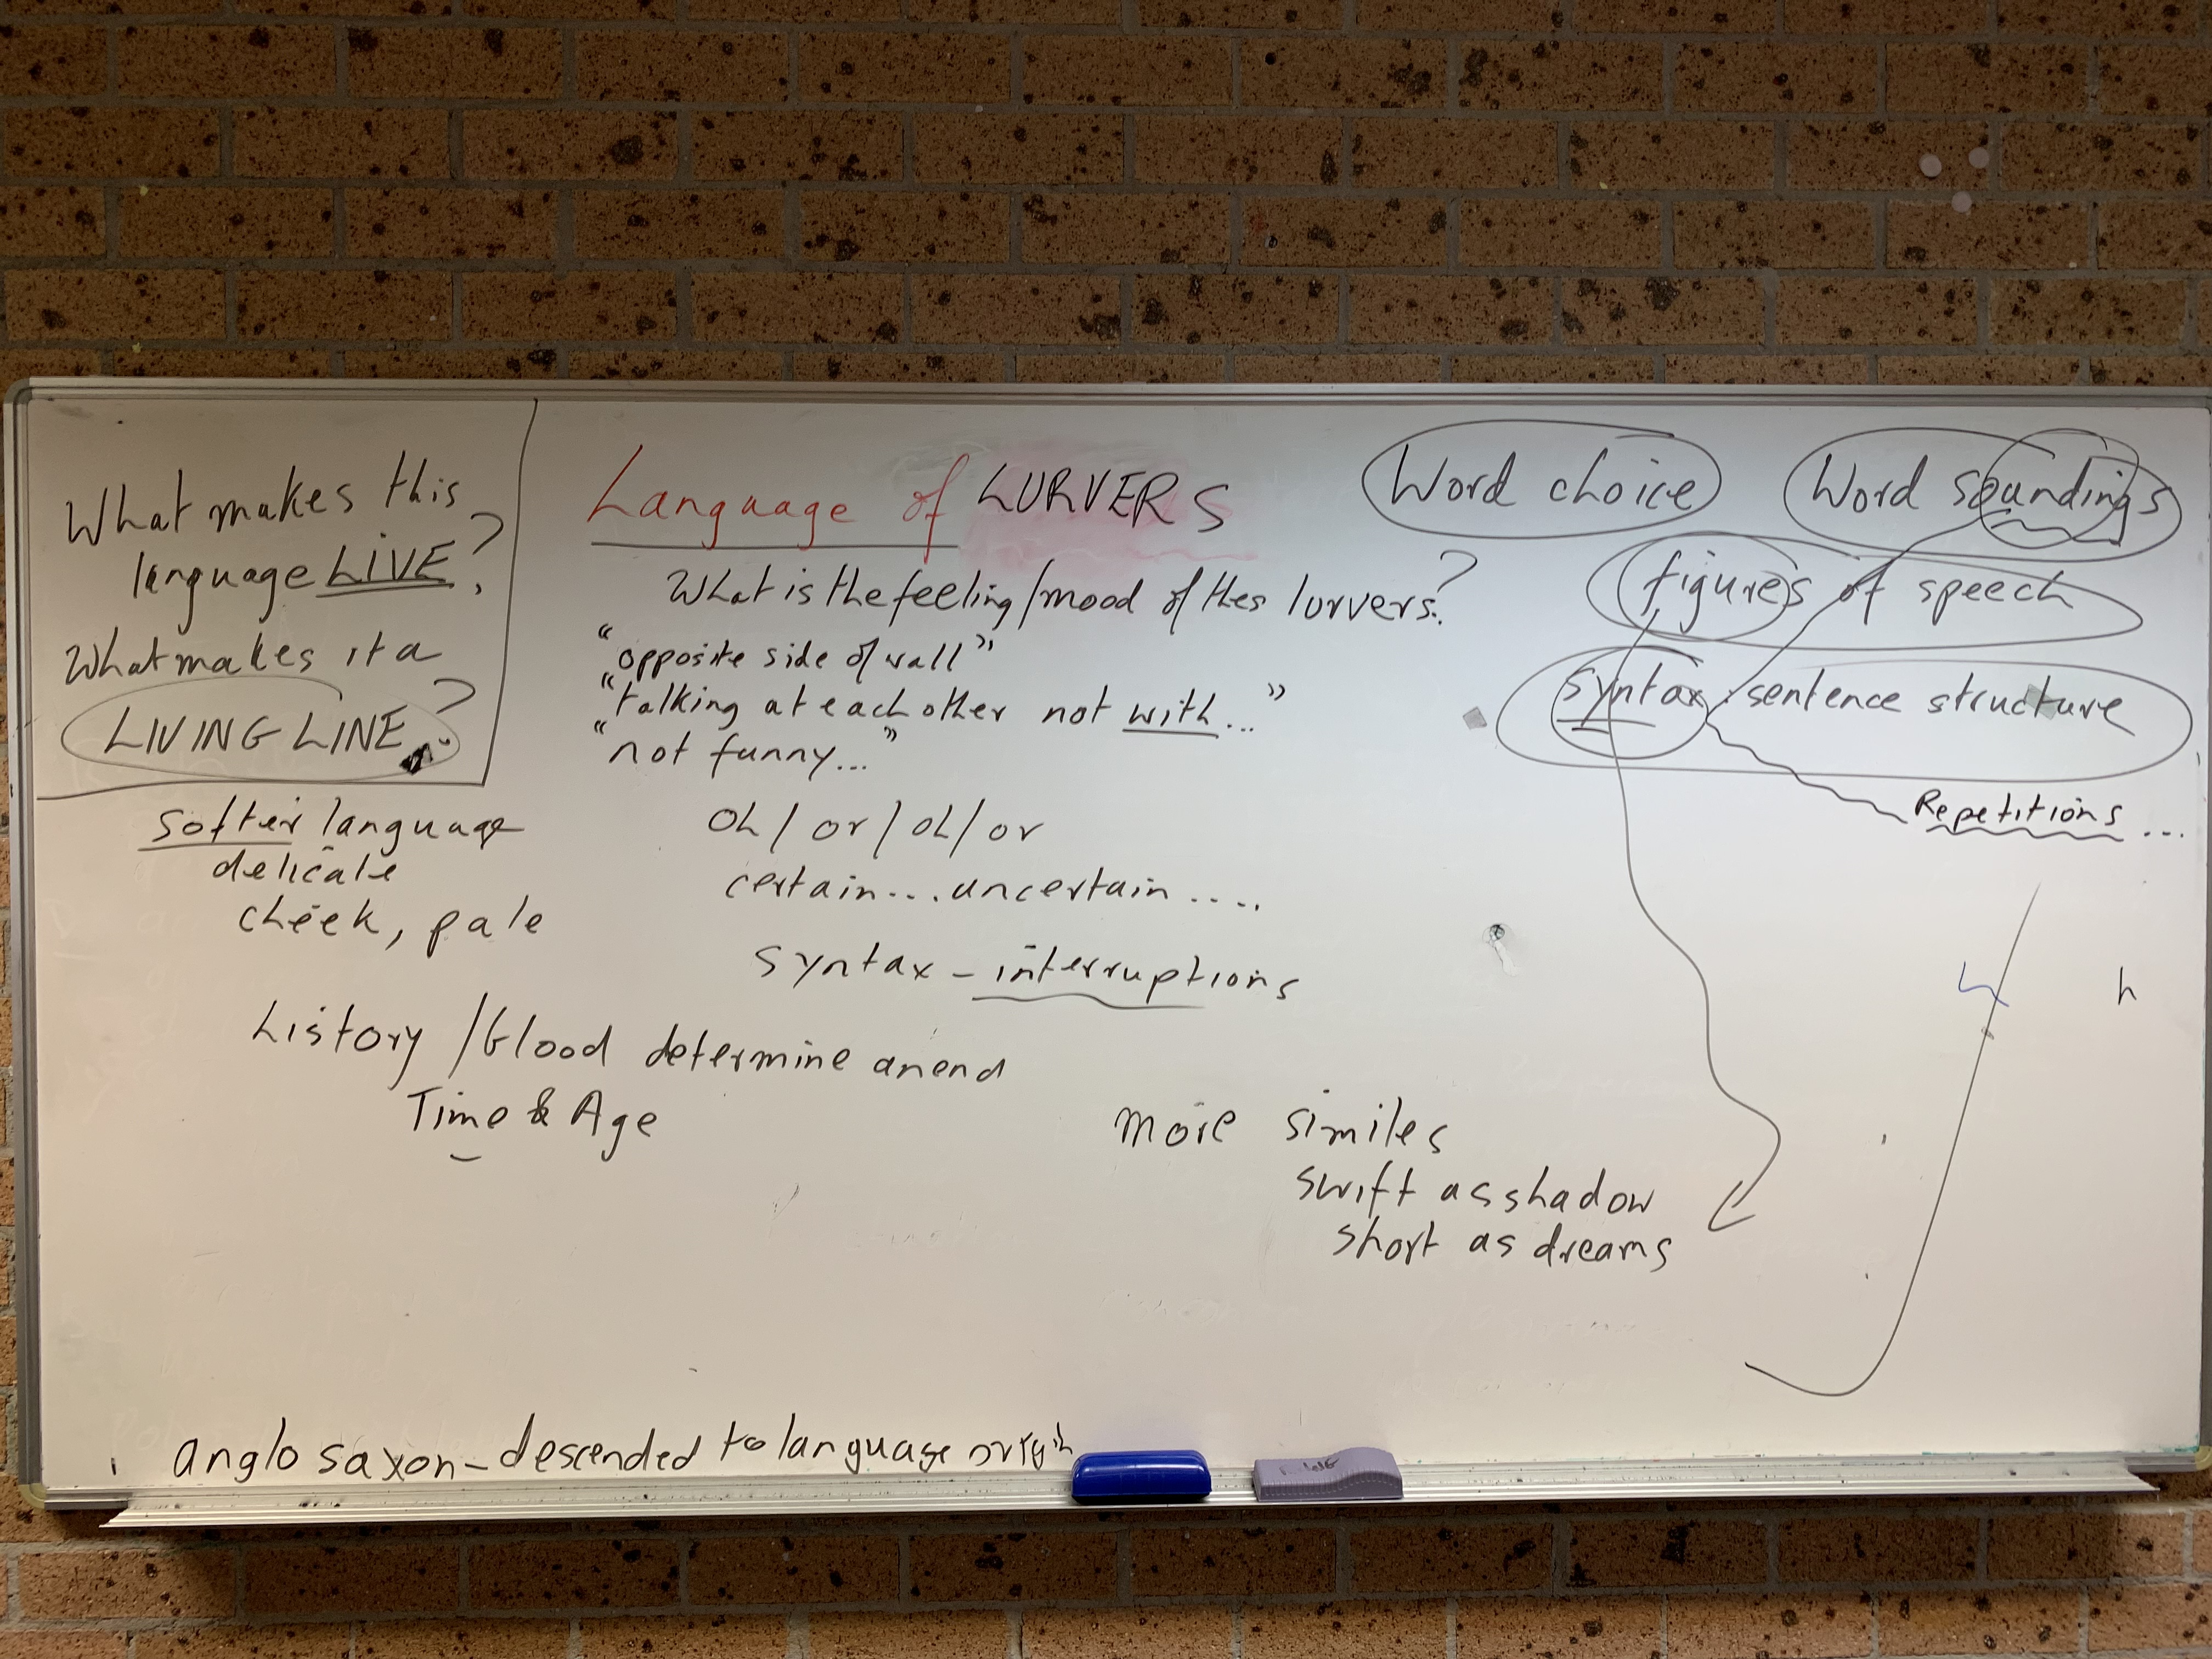 What makes this
language LIVE?
What makes it a
LIVING LINE?
Language of LURVERS
What is the feeling/mood of thes lurvers?
"opposite side of wall"
"talking at each other not with..."
"not funny..."
Word choice
Word soundings
figures of speech
syntax: sentence structure
Repetitions ...
softer language
delicate
cheek, pale
oh / or / oh / or
certain... uncertain ....
syntax - interruptions
history / blood determine an end
Time & Age
more similes
swift as shadow
short as dreams
h
anglo saxon - descended to language